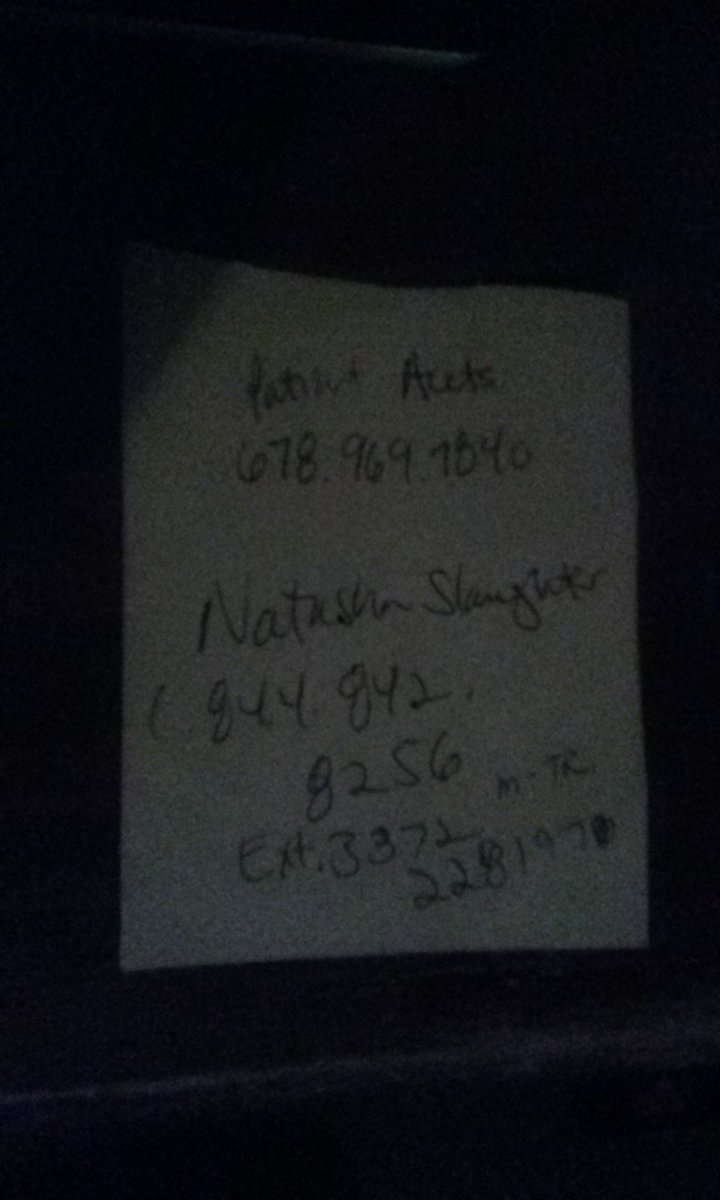 Patient Accts
678.969.7840
Natasha Slaughter
(.844.842.
8256
m-TR
Ext.3372